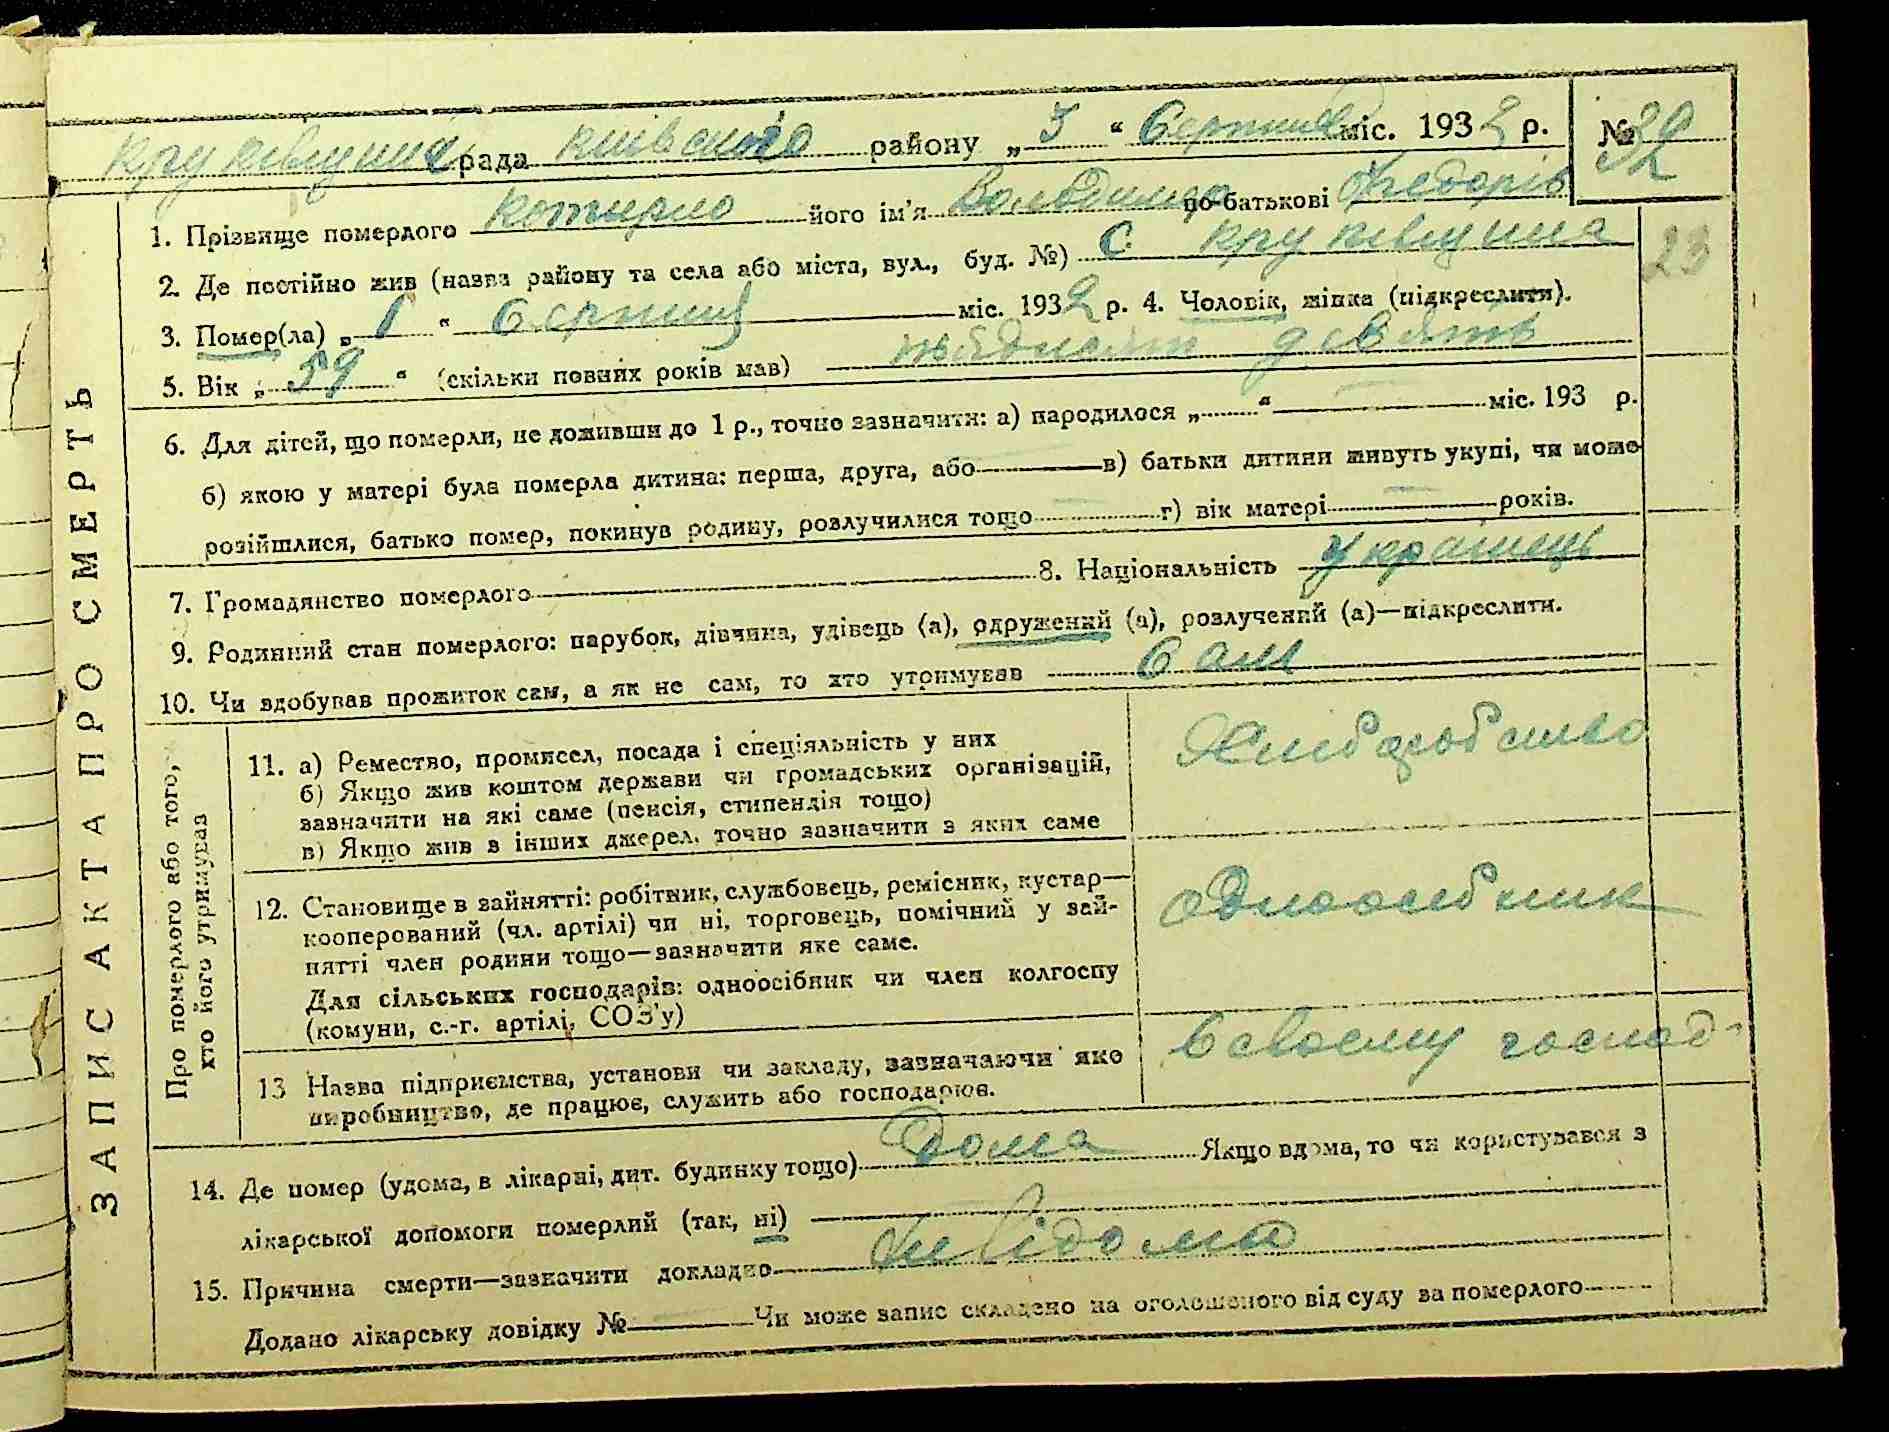 Круківщинс рада київського району „ 3 “ Серпня міс. 1932 р. № 32
1. Прізвище померлого котирло його ім'я Володимир по-батькові Федорів
2. Де постійно жив (назва району та села або міста, вул., буд. №) С круківщина
23
3. Помер(ла) „ 1 “ Серпня міс. 1932 р. 4. Чоловік, жінка (підкреслити).
5. Вік „ 59 “ (скільки повних років мав) пядисят девять
6. Для дітей, що померли, не доживши до 1 р., точно зазначити: а) народилося „ “ міс. 193 р.
б) якою у матері була померла дитина: перша, друга, або в) батьки дитини живуть укупі, чи може
розійшлися, батько помер, покинув родину, розлучилися тощо г) вік матері років.
7. Громадянство померлого 8. Національність Українець
9. Родинний стан померлого: парубок, дівчина, удівець (а), одружений (а), розлучений (а)—підкреслити.
10. Чи здобував прожиток сам, а як не сам, то хто утримував Сам
ЗАПИС АКТА ПРО СМЕРТЬ
Про померлого або того,
хто його утримував
11. а) Ремество, промисел, посада і спеціяльність у них
б) Якщо жив коштом держави чи громадських організацій,
зазначити на які саме (пенсія, стипендія тощо)
в) Якщо жив з інших джерел, точно зазначити з яких саме
Хлібаробство
12. Становище в зайнятті: робітник, службовець, ремісник, кустар—
кооперований (чл. артілі) чи ні, торговець, помічний у зай-
нятті член родини тощо—зазначити яке саме.
Для сільських господарів: одноосібник чи член колгоспу
(комуни, с.-г. артілі, СОЗ'у)
одноосібник
13 Назва підприємства, установи чи закладу, зазначаючи яке
виробництво, де працює, служить або господарює.
в своєму господ-
14. Де помер (удома, в лікарні, дит. будинку тощо) Дома Якщо вдома, то чи користувався з
лікарської допомоги померлий (так, ні)
15. Причина смерти—зазначити докладно Невідома
Додано лікарську довідку № Чи може запис складено на оголошеного від суду за померлого